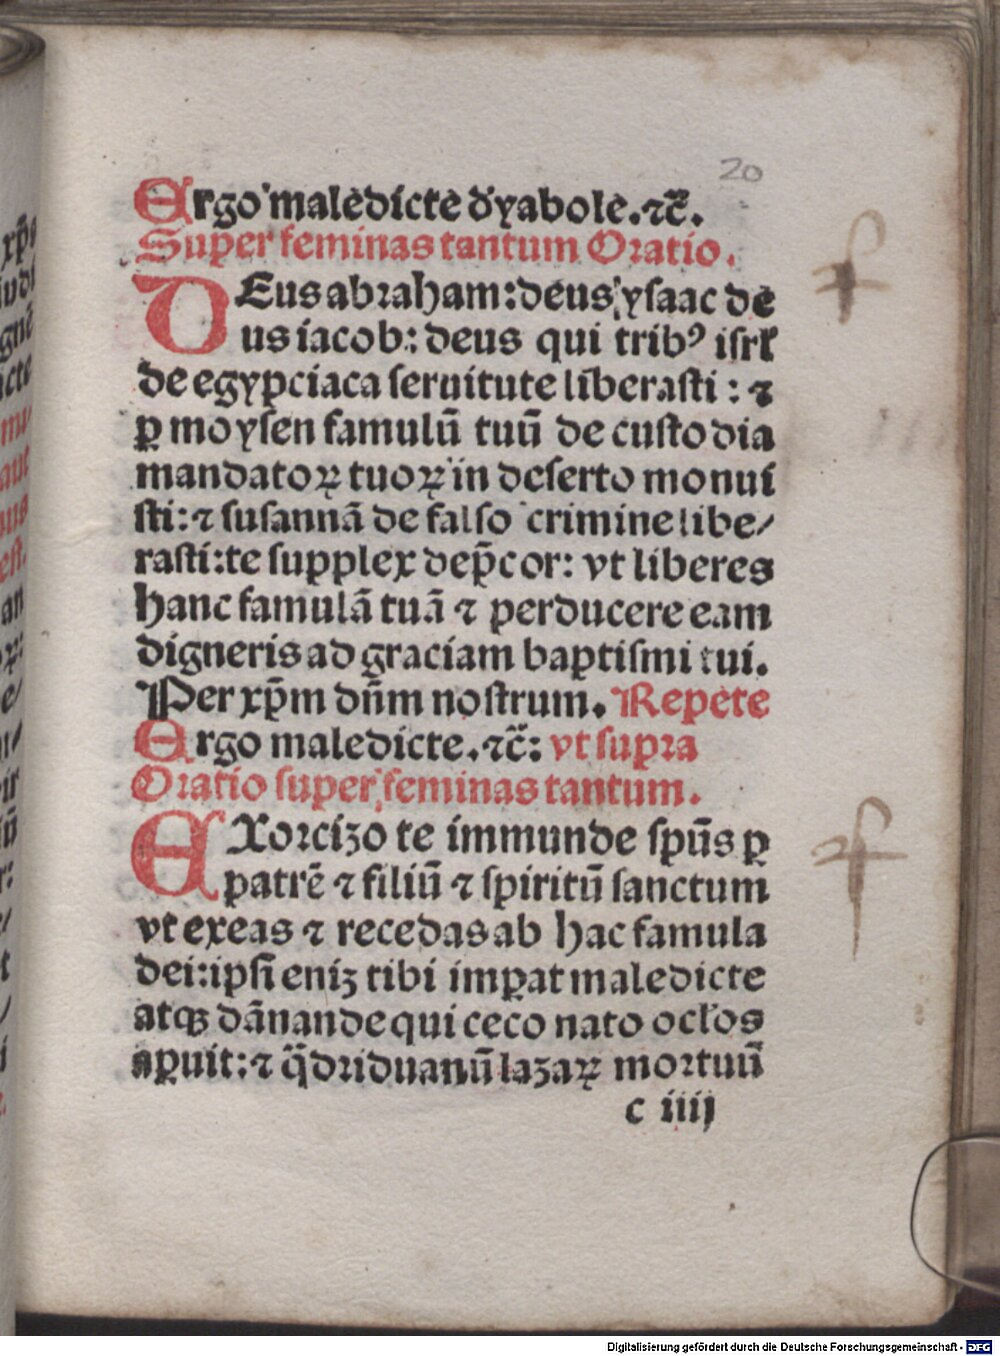 20
Ergo maledicte dyabole.⁊c̃.
Super feminas tantum Oratio.
DEus abraham: deus ysaac de
us iacob: deus qui tribꝰ isrl̕
de egypciaca seruitute liberasti: ⁊
ꝑ moysen famulū tuū de custodia
mandatoꝝ tuoꝝ in deserto monui
sti: ⁊ susannā de falso crimine libe⸗
rasti: te supplex dep̄cor: vt liberes
hanc famulā tuā ⁊ perducere eam
digneris ad graciam baptismi tui.
Per xp̄m dn̄m nostrum. Repete
Ergo maledicte.⁊c̃: vt supra
Oratio super feminas tantum.
EXorcizo te immunde spūs ꝑ
patrē ⁊ filiū ⁊ spiritū sanctum
vt exeas ⁊ recedas ab hac famula
dei: ipsi eniꝫ tibi imꝑat maledicte
atqꝫ dānande qui ceco nato ocl̕os
aꝑuit: ⁊ q̈driduanū lazaꝝ mortuū
c iiij
Digitalisierung gefördert durch die Deutsche Forschungsgemeinschaft - DFG